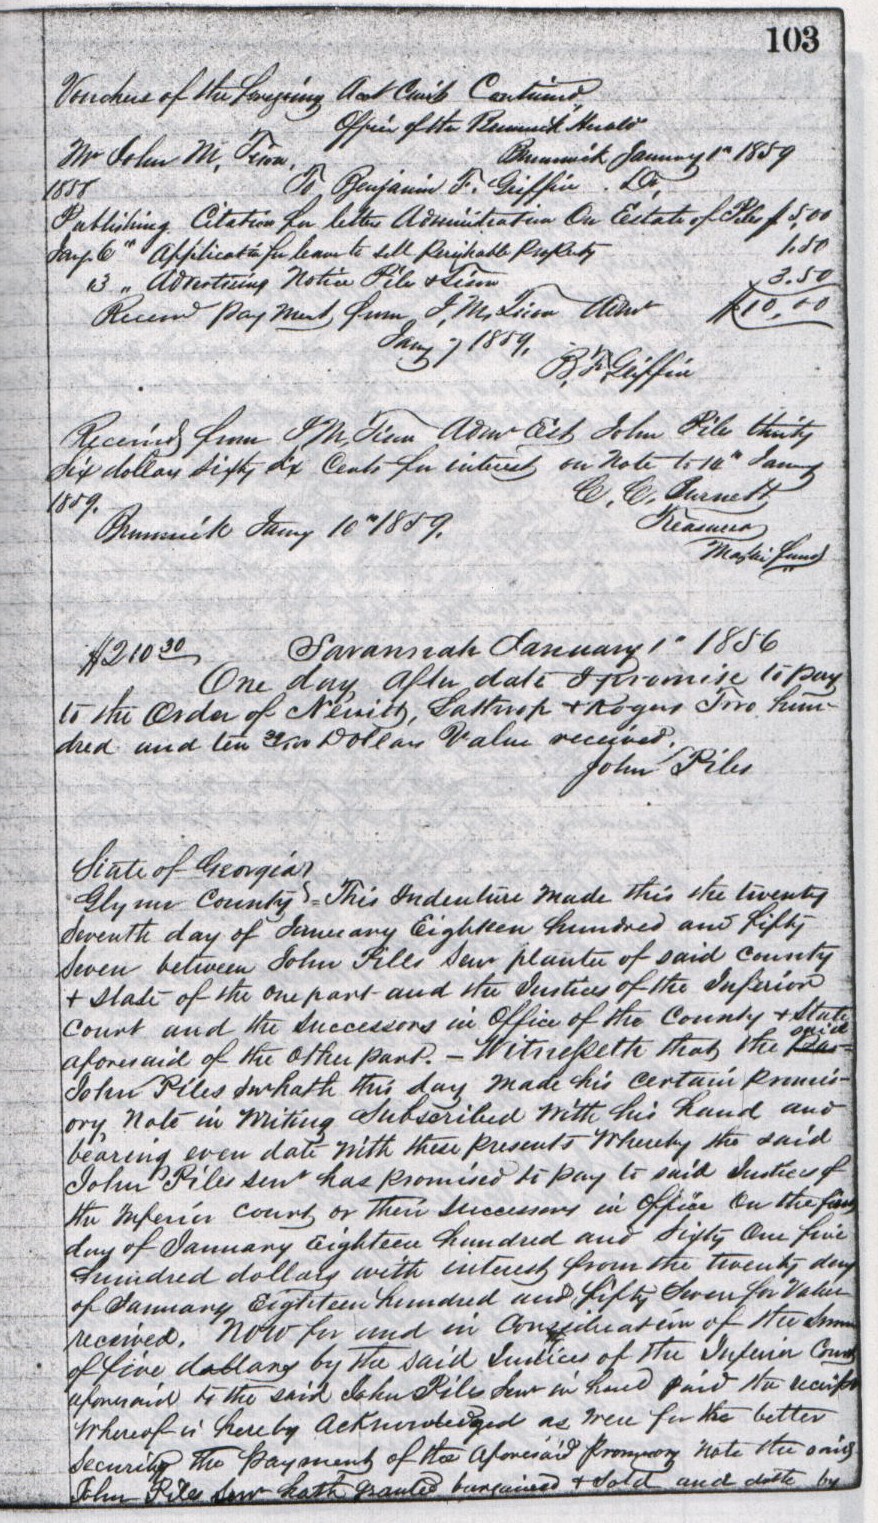 103
Vouchers of the foregoing Acct Curt Continued
Office of the Brunswick Herald
Brunswick January 1st 1859
Mr John M. Tison,
1858 To Benjamin F. Griffin . Dr,
Publishing Citation for letters Administration On Estate of Piles $5,00
Jany 6th " Application for leave to sell Perishable Property 1.50
" 3 " Advertising Notice Piles & Tison 3.50
Received payment from J, M, Tison Admr $10,00
Jany 7 1859,
B, F, Griffin
Received from J M, Tison Admr Est John Piles thirty
Six dollars Sixty Six Cents for interest on Note to 10th January
1859.
C, C, Burnett,
Brunswick Jany 10th 1859, Treasurer
fund
$210 30 Savannah January 1st 1856
One day after date I promise to pay
to the Order of Nevitt, Lathrop & Rogers Two hun-
dred and ten 30/100 Dollars Value received.
John Piles
State of Georgia
Glynn County = This Indenture made this the twenty
Seventh day of January Eighteen hundred and fifty
Seven between John Piles Senr planter of said County
& State of the one part and the Justices of the Inferior
Court and the Successors in Office of the County & State
aforesaid of the Other part. – Witnesseth that the said
John Piles Snr hath this day made his certain promis-
ory Note in Writing Subscribed With his hand and
bearing even date With these presents Whereby the said
John Piles Senr has promised to pay to said Justices of
the Inferior Court or their Successors in Office On the first
day of January Eighteen hundred and Sixty One five
hundred dollars with interest from the twenty day
of January Eighteen hundred and fifty Seven for Value
received. Now for and in Consideration of the Sum
of five dollars by the said Justices of the Inferior Court
aforesaid to the said John Piles Senr in hand paid the receipt
Whereof is hereby Acknowledged as well for the better
Security the Payment of the aforesaid Promisory Note the said
John Piles Senr hath granted bargained & sold and doth by